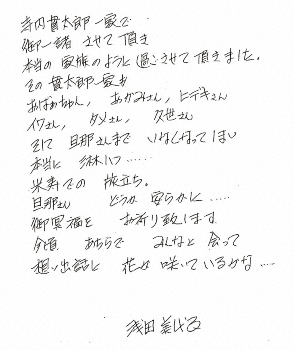 寺内貫太郎一家で
御一緒させて頂き
本当の家族のように過ごさせて頂きました。
その貫太郎一家も
おばあちゃん、おかみさん、ヒデキさん
イワさん、タメさん、久世さん
そして旦那さんまでいなくなってしまい
本当に淋しい……
米寿での旅立ち。
旦那さん どうか安らかに……
御冥福をお祈り致します
今頃 あちらで みんなと会って
想い出話に花が咲いているかな……
浅田美代子